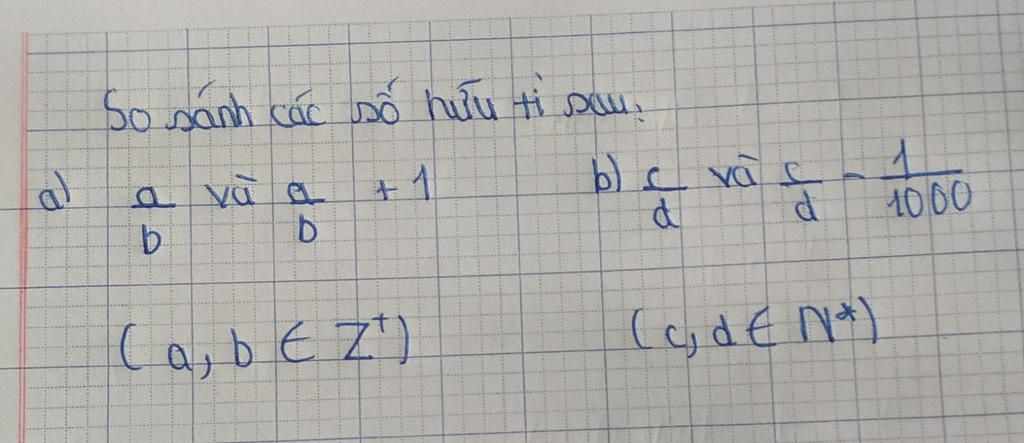 So sánh các số hữu tỉ sau:
a) a/b và a/b + 1 b) c/d và c/d - 1/1000
(a, b ∈ Z⁺) (c, d ∈ N*)